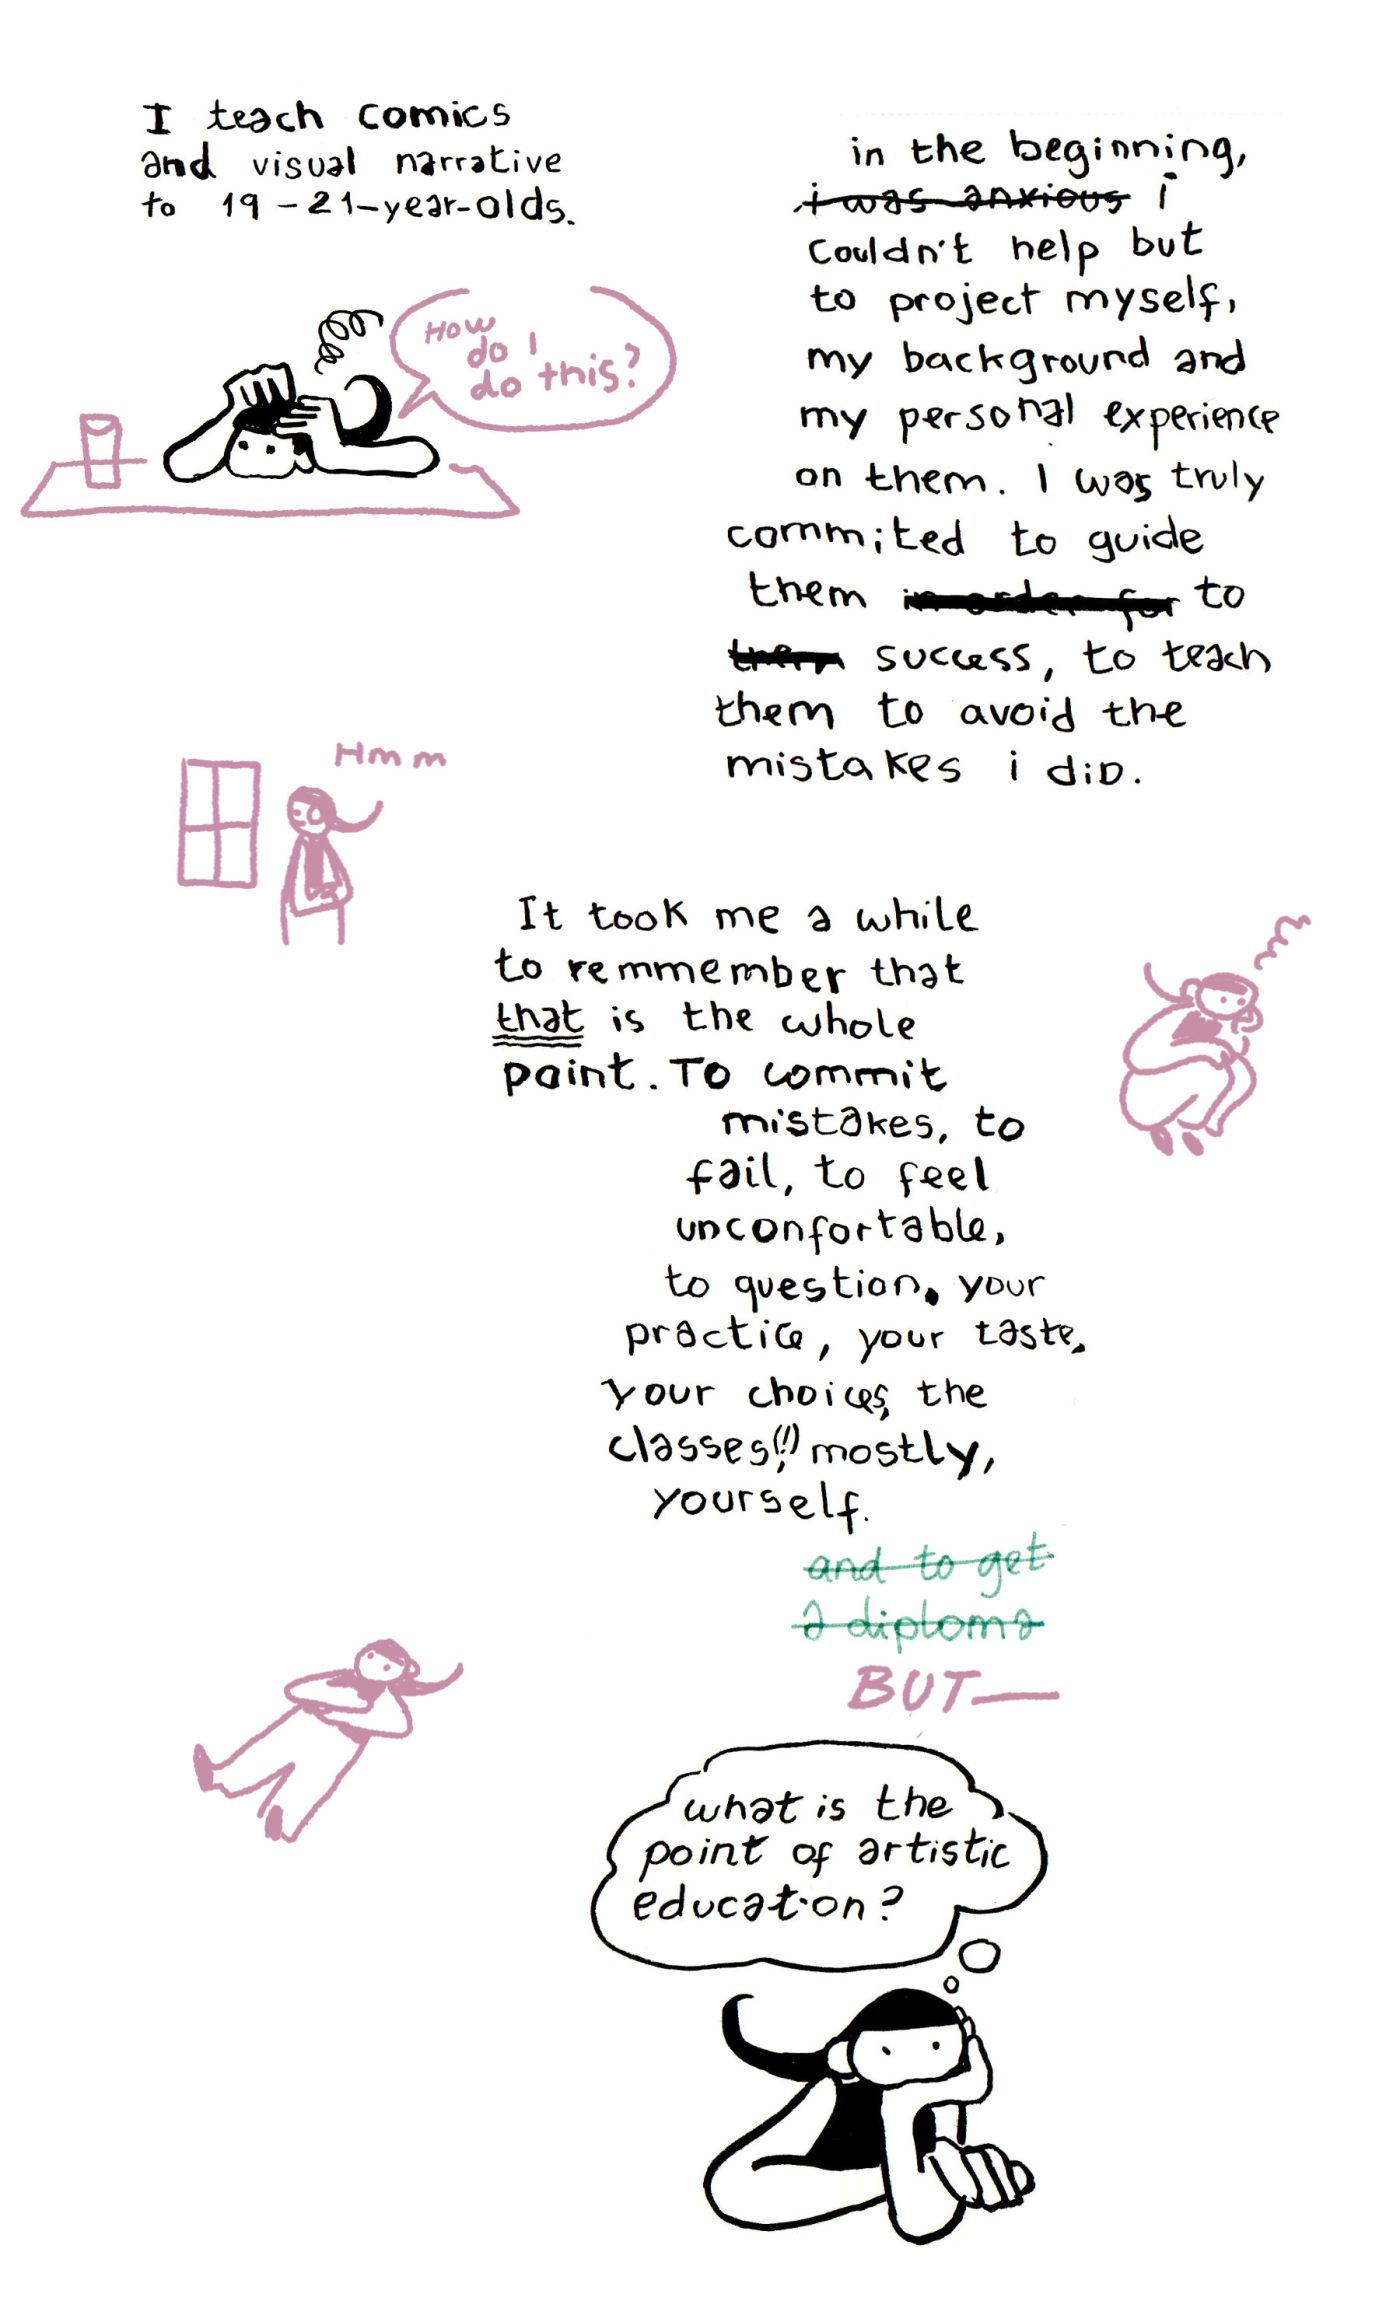 I teach comics
and visual narrative
to 19-21-year-olds.
How
do I
do this?
in the beginning,
i was anxious i
couldn't help but
to project myself,
my background and
my personal experience
on them. I was truly
commited to guide
them in order for to
them success, to teach
them to avoid the
mistakes i did.
Hmm
It took me a while
to remmember that
that is the whole
point. To commit
mistakes, to
fail, to feel
unconfortable,
to question, your
practice, your taste,
your choices, the
classes(!), mostly,
yourself.
and to get
a diploma
BUT—
what is the
point of artistic
education?